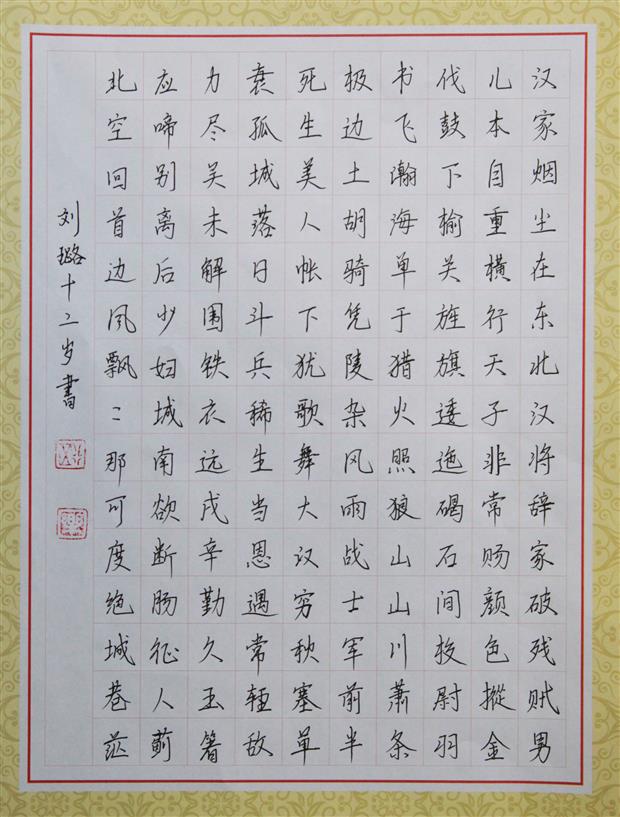 汉家烟尘在东北汉将辞家破残贼男
儿本自重横行天子非常赐颜色摐金
伐鼓下榆关旌旗逶迤碣石间校尉羽
书飞瀚海单于猎火照狼山山川萧条
极边土胡骑凭陵杂风雨战士军前半
死生美人帐下犹歌舞大汉穷秋塞单
衰孤城落日斗兵稀生当恩遇常轻敌
力尽关未解围铁衣远戍辛勤久玉箸
应啼别离后少妇城南欲断肠征人蓟
北空回首边风飘〻那可度绝域巷茫
刘璐十二岁书